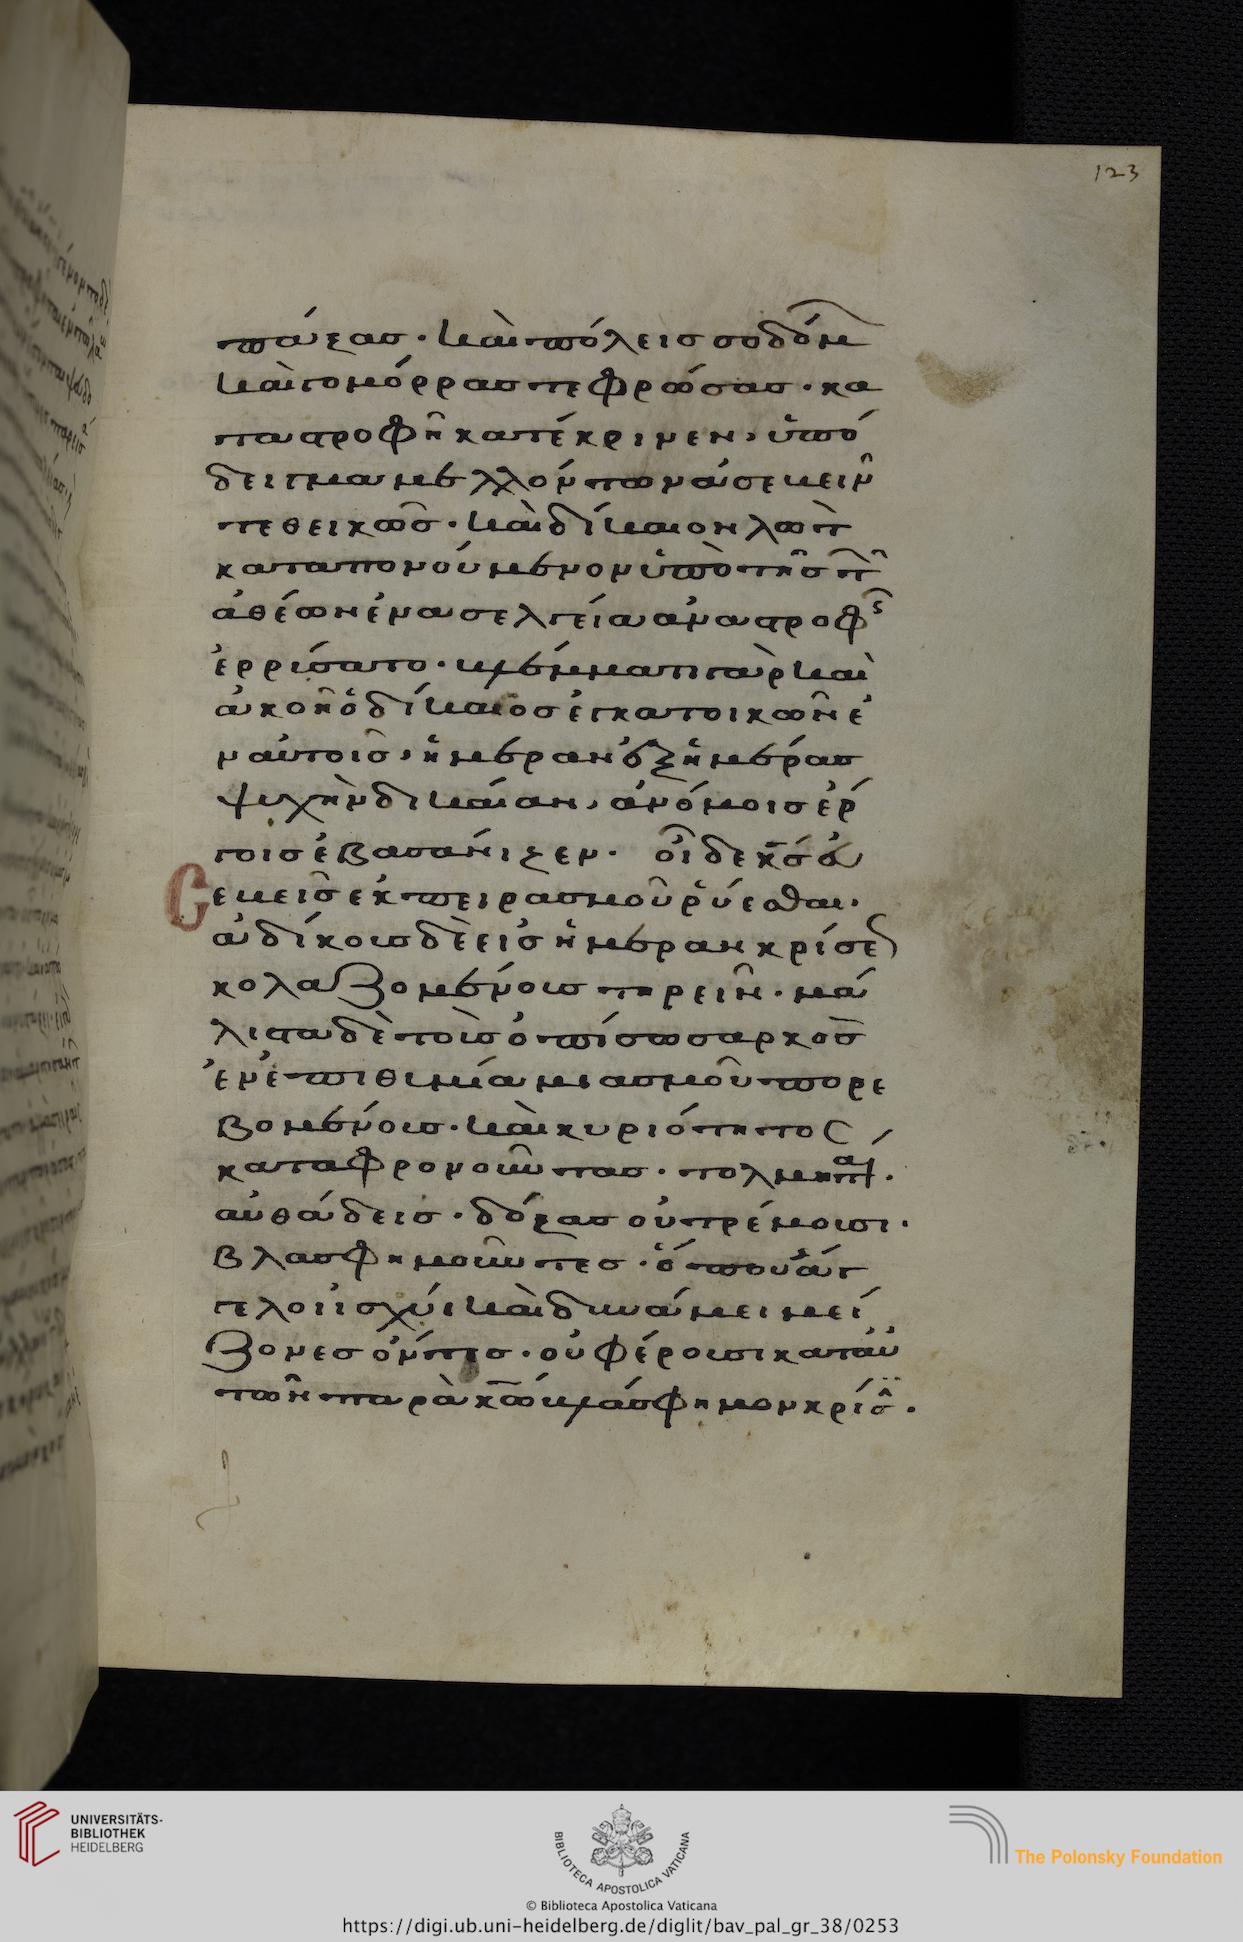 123
πάξας· καὶ πόλεις σοδόμ
καὶ γομόρρας τεφρώσας· κα
ταστροφῆ κατέκρινεν, ὑπό
δειγμα μελλόντων ἀσεβεῖν
τεθεικὼς· καὶ δίκαιον λὼτ
καταπονούμενον ὑπὸ τῆς τῶν
ἀθέσμων ἐν ἀσελγεία ἀναστροφῆς
ἐρρύσατο· βλέμματι γὰρ καὶ
ἀκοῆ ὁ δίκαιος ἐγκατοικῶν ἐ
ν αὐτοῖς, ἡμέραν ἐξ ἡμέρας
ψυχὴν δικαίαν, ἀνόμοις ἔρ
γοις ἐβασάνιζεν· οἶδε κσ ευ
σεβεῖς ἐκ πειρασμοῦ ῥύεσθαι·
ἀδίκους δὲ εἰς ἡμέραν κρίσεως
κολαζομένους τηρεῖν· μά
λιστα δὲ τοὺς ὀπίσω σαρκὸς
ἐν ἐπιθυμία μιασμοῦ πορε
υομένους· καὶ κυριότητος
καταφρονοῦντας· τολμηταί·
αὐθάδεις· δόξας οὐ τρέμουσι·
βλασφημοῦντες· ὅπου ἄγ
γελοι ἰσχύι καὶ δυνάμει μεί
ζονες ὄντες· οὐ φέρουσι κατ αὐ
τῶν παρὰ κω βλάσφημον κρίσιν·
UNIVERSITÄTS-
BIBLIOTHEK
HEIDELBERG
BIBLIOTECA APOSTOLICA VATICANA
The Polonsky Foundation
© Biblioteca Apostolica Vaticana
https://digi.ub.uni-heidelberg.de/diglit/bav_pal_gr_38/0253